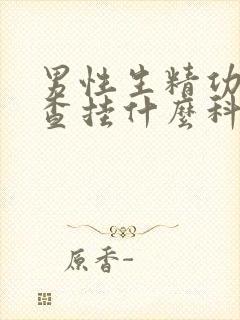 男性生精功
查挂什麼科
原香-